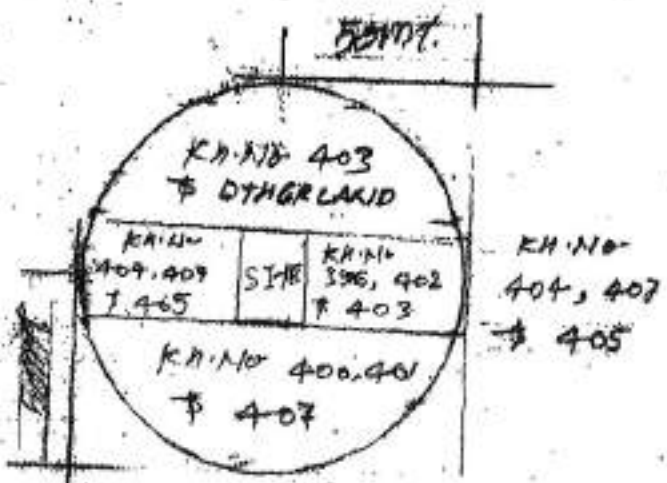 50MT.
KH.No 403
& OTHER LAND
KH.No
404, 409
& 405
SITE
KH.No
396, 402
& 403
KH.No
404, 407
& 405
KH.No 400, 401
& 407
50MT